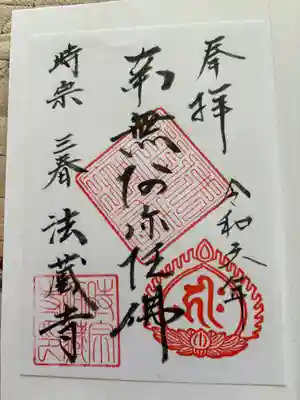 奉拝
令和元年
南無阿弥陀佛
時宗 三春 法蔵寺